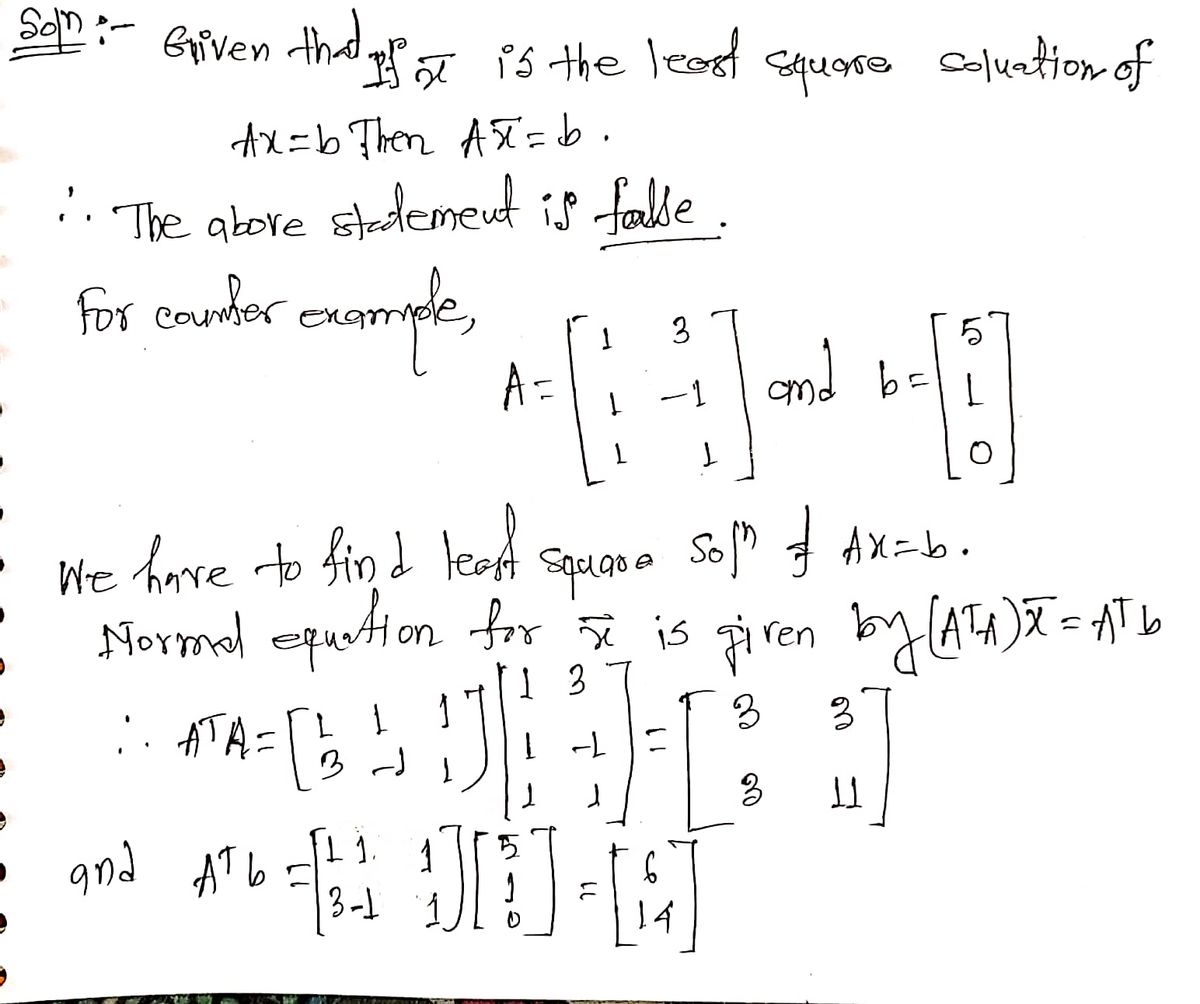 Soln :- Given that If x̄ is the least square soluation of
Ax=b Then Ax̄=b.
∴ The above statement is false.
For counter example,
A = [1 3; 1 -1; 1 1] and b = [5; 1; 0]
We have to find least square soln of Ax=b.
Normal equation for x̄ is given by (AᵀA)x̄ = Aᵀb
∴ AᵀA = [1 1 1; 3 -1 1] [1 3; 1 -1; 1 1] = [3 3; 3 11]
and Aᵀb = [1 1. 1; 3 -1 1] [5; 1; 0] = [6; 14]